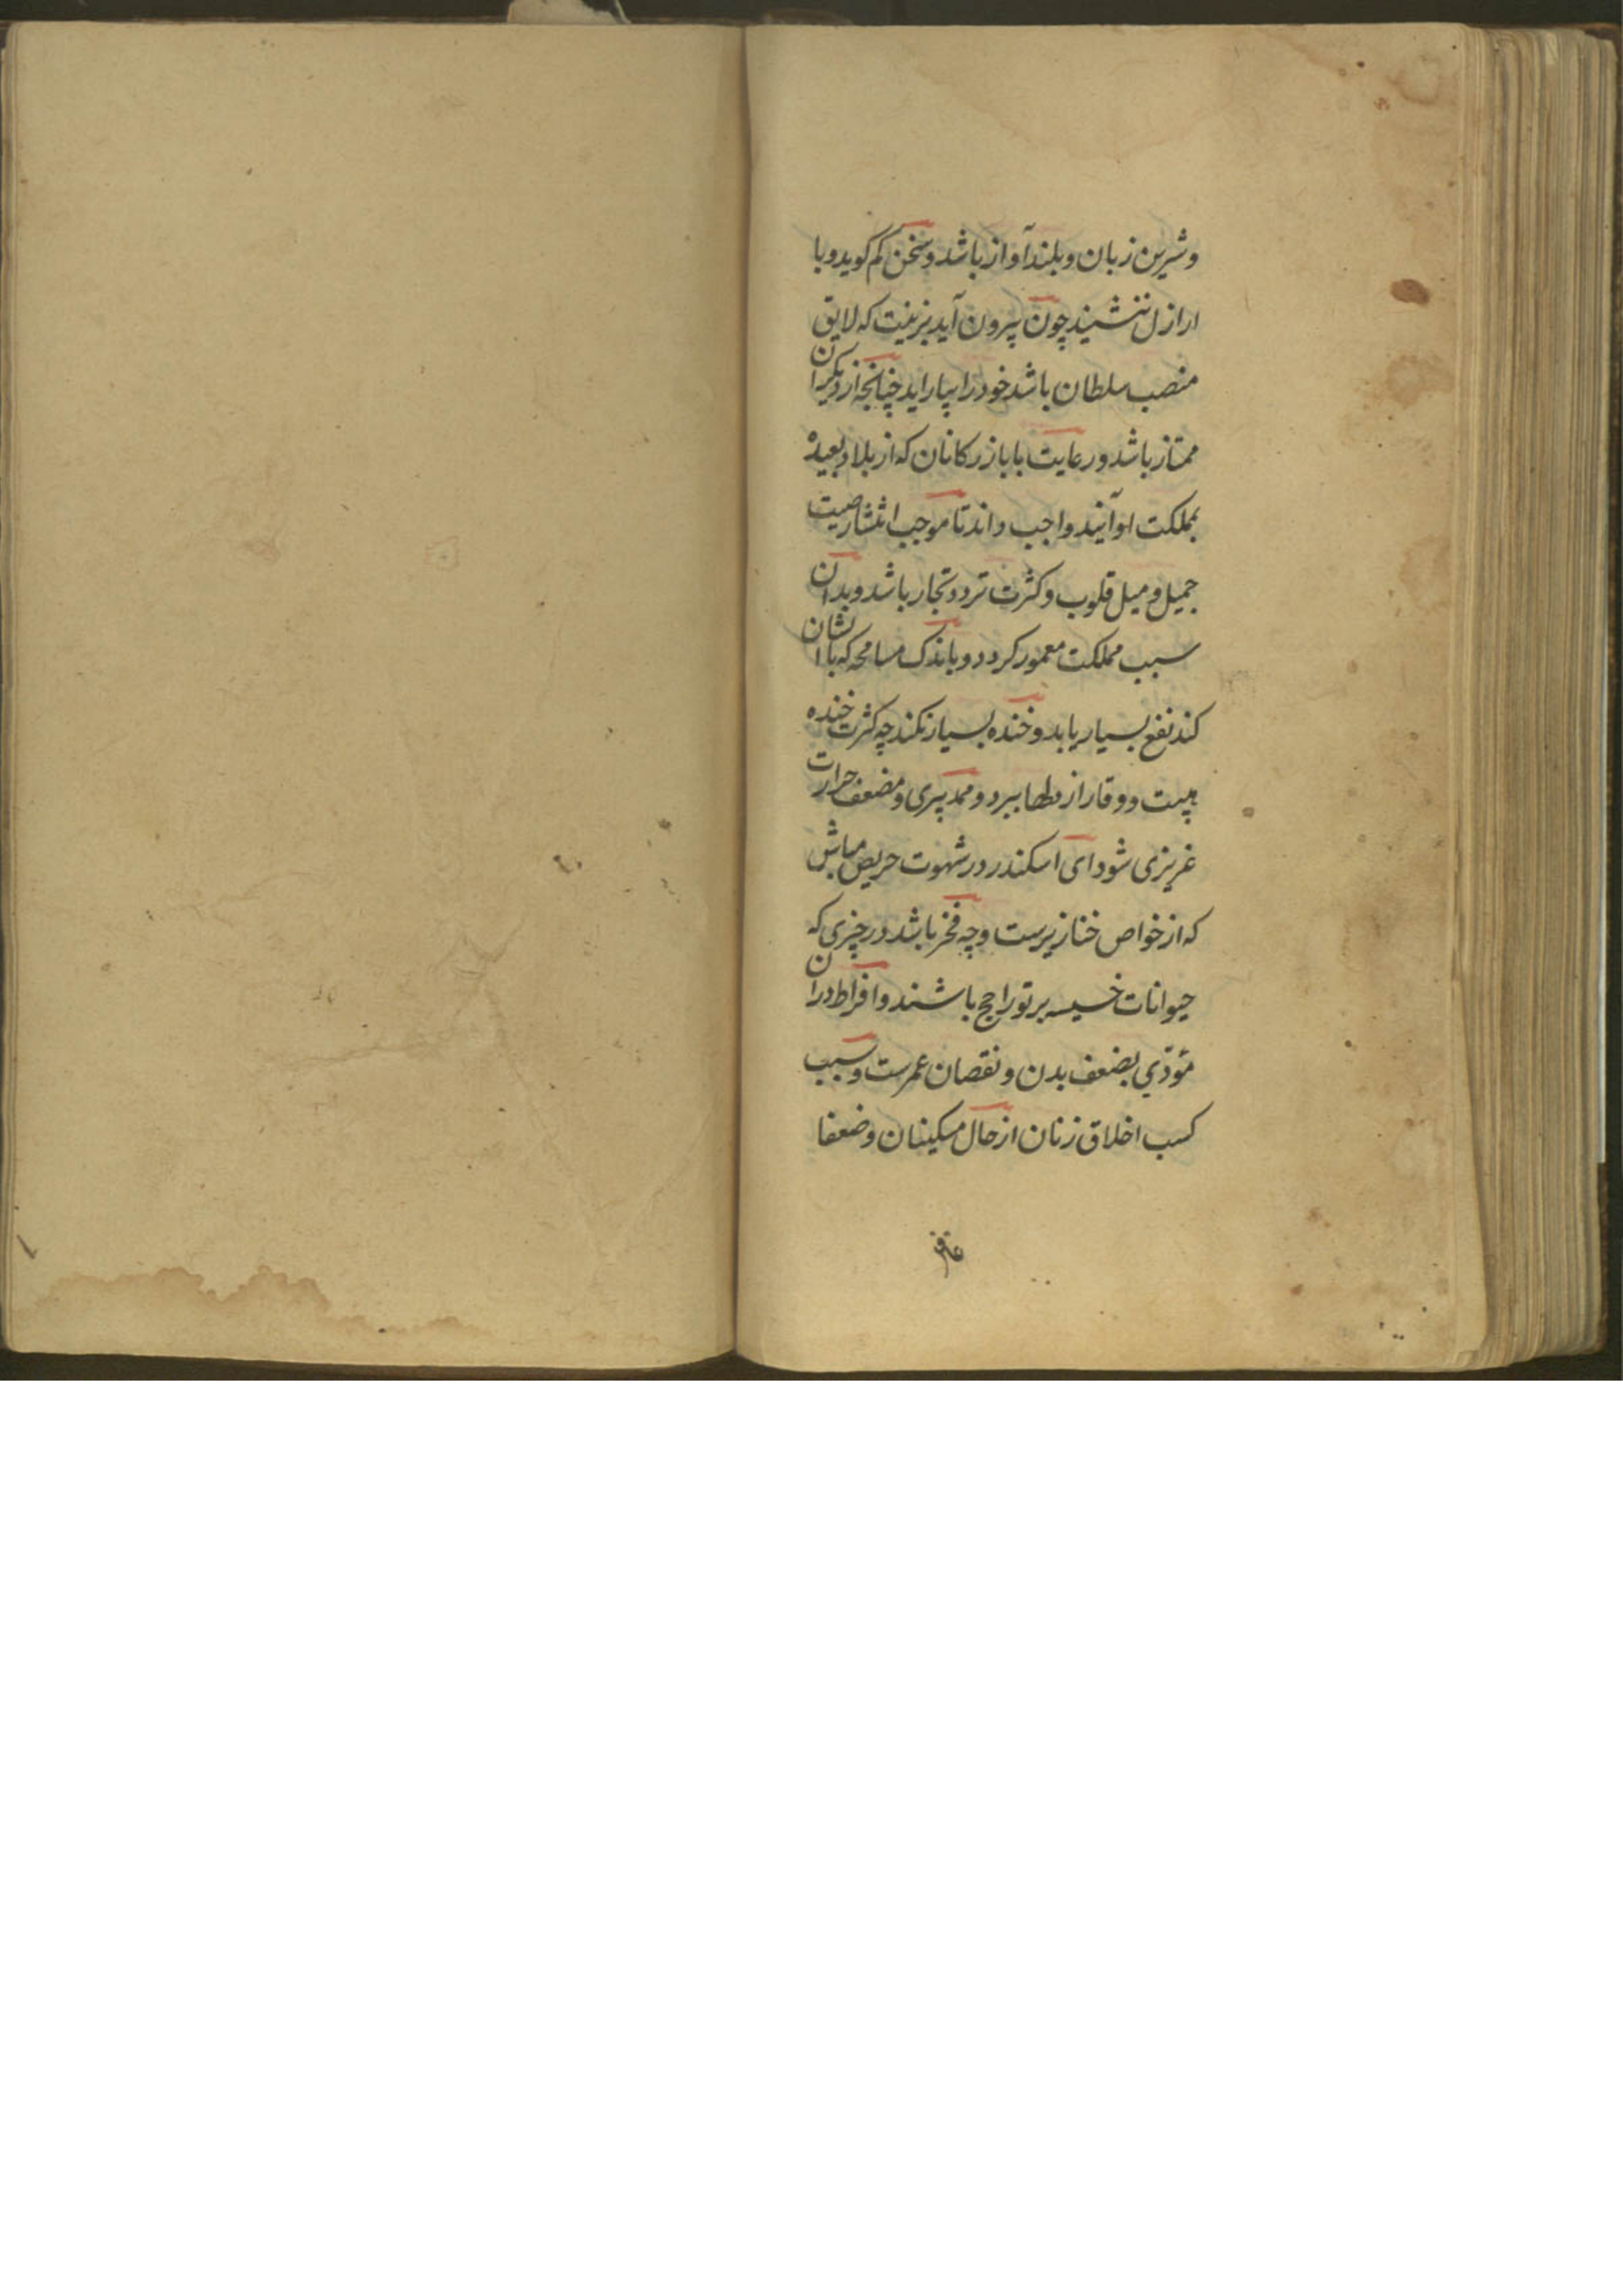 وشیرین زبان وبلندآواز باشد وسخن کم کوید وبا
اراذل ننشیند چون بیرون آید بزینت که لایق
منصب سلطان باشد خود را بیاراید چنانچه از دیکران
ممتاز باشد ورعایت با بازرکانان که از بلاد بعیده
بمملکت او آیند واجب داند تا موجب انتشار صیت
جمیل ومیل قلوب وکثرت تردد تجار باشد وبدان
سبب مملکت معمور کردد وباندک مسامحه که باایشان
کند نفع بسیار یابد وخنده بسیار نکند چه کثرت خنده
هیبت ووقار از دلها ببرد وممد پیری ومضعف حرارت
غریزی شود ای اسکندر در شهوت حریص مباش
که از خواص خنازیرست وچه فخر باشد در چیزی که
حیوانات خسیسه بر تو راجح باشند وافراط در آن
مؤدّي بضعف بدن ونقصان عمرست وسبب
کسب اخلاق زنان از حال مسکینان وضعفا